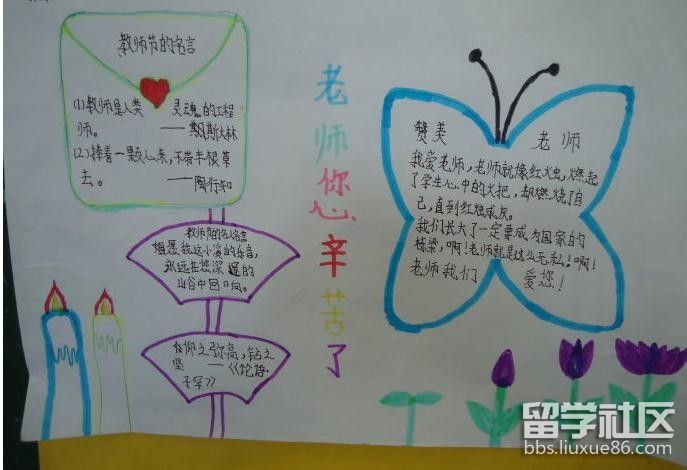 教师节的名言
(1)教师是人类 灵魂的工程
师。 ——斯大林
(2)捧着一颗心来,不带半根草
去。 ——陶行知
教师节的名人名言
想愿我这小溪的乐音,
永远在您深邃的
山谷中回响。
仰之弥高,钻之
弥坚 ——《论语·
子罕》
老师您辛苦了
赞美 老师
我爱老师,老师就像红烛,燃起
了学生心中的火把,却燃烧了自
己,直到红烛成灰。
我们长大了一定要成为国家的
栋梁,啊!老师就是这么无私!啊!
老师我们 爱您!
留学社区
bbs.liuxue86.com